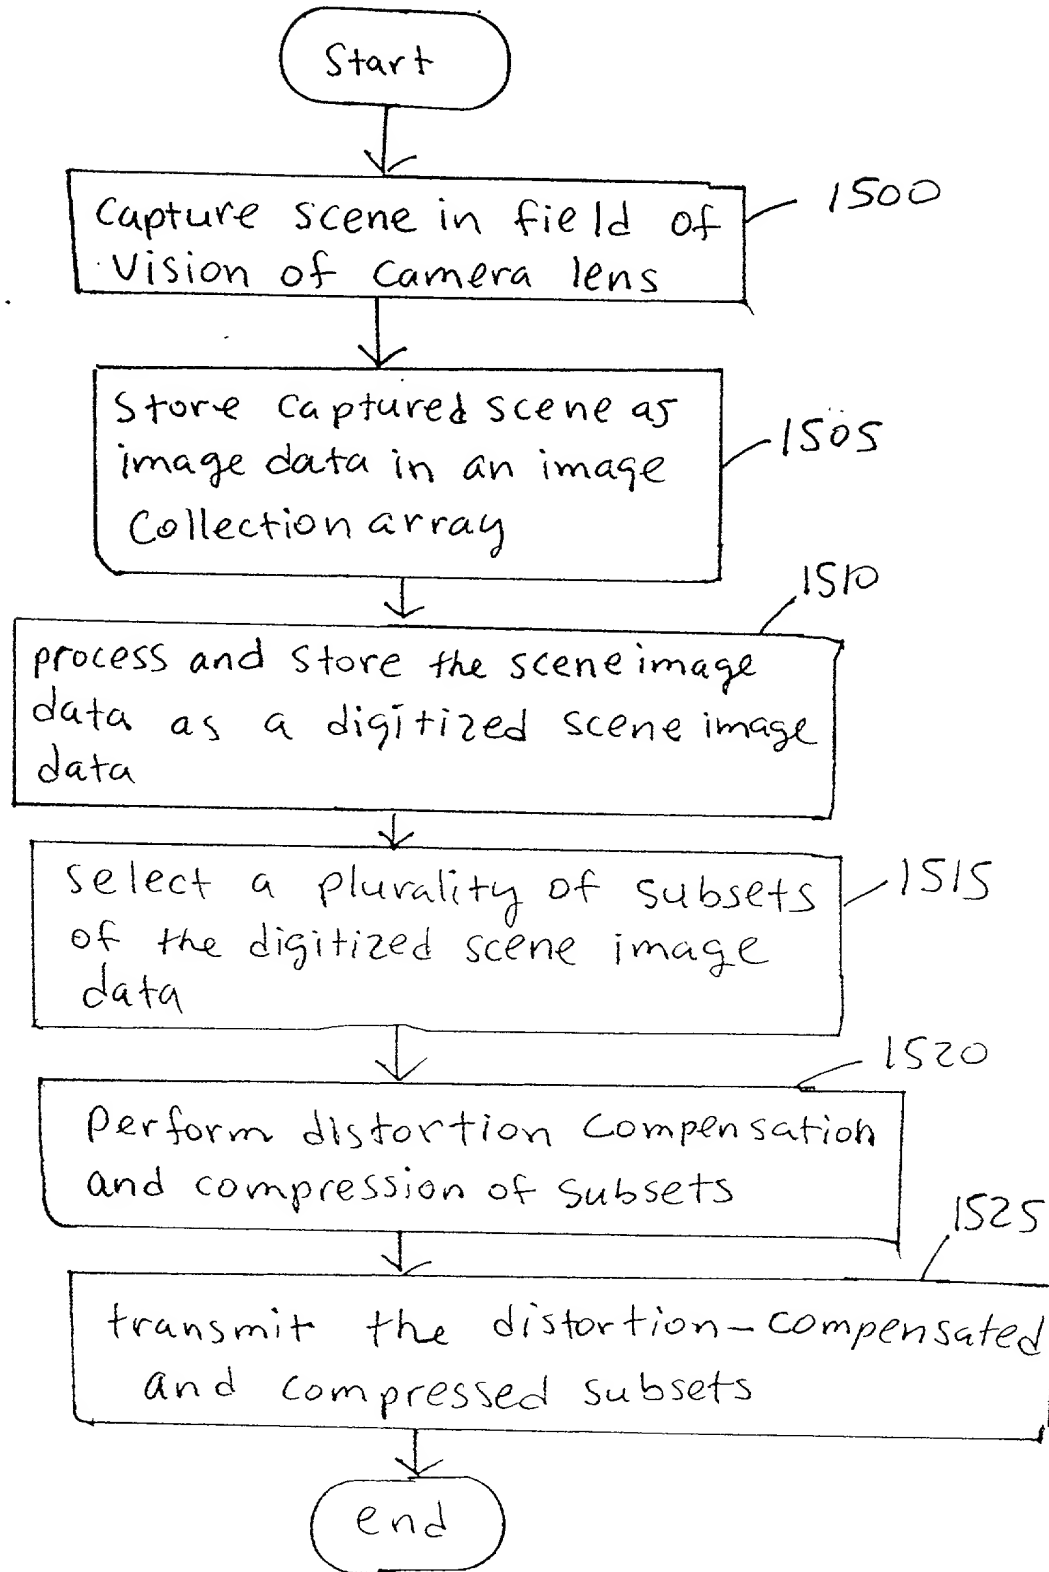 Start
1500
Capture scene in field of
vision of camera lens
Store captured scene as
image data in an image
Collection array
1505
1510
process and store the scene image
data as a digitized scene image
data
select a plurality of subsets
of the digitized scene image
data
1515
1520
Perform distortion compensation
and compression of subsets
1525
transmit the distortion-compensated
and compressed subsets
end